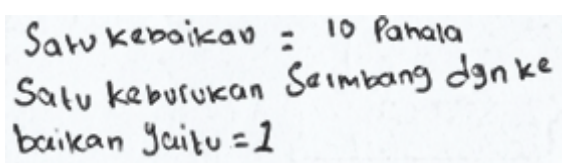 Satu kebaikan = 10 Pahala
Satu keburukan Seimbang dgn ke
baikan yaitu = 1